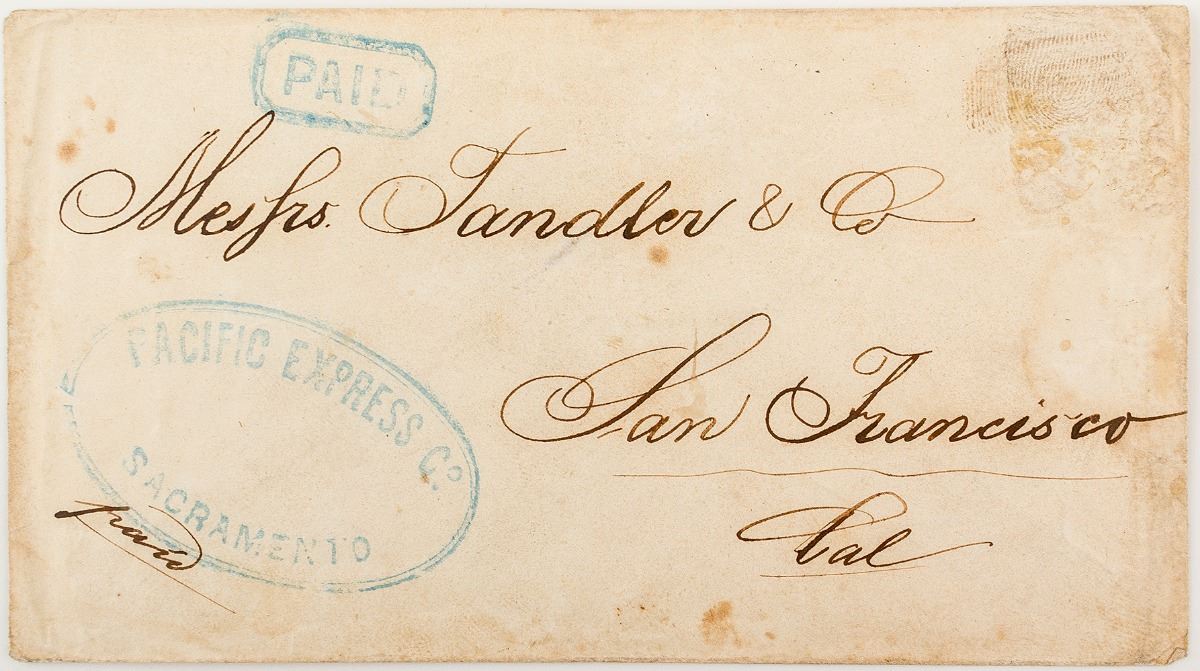 PAID
Messrs. Tandler & Co
San Francisco
Cal
PACIFIC EXPRESS Co.
SACRAMENTO
paid